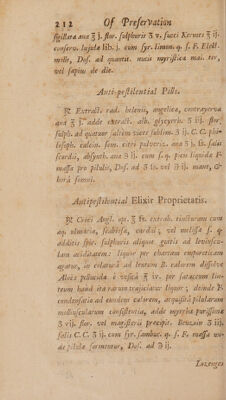 212 Of Preservation
sigillata ana ʒj. flor. sulphuris ʒv. succi Kermes ʒij.
conserv. lujulæ lib. j. cum syr. limon. q. s. F. Elect.
molle, Dos. ad quantit. nucis myristicæ mai. ter,
vel sæpius de die.
Anti-pestilential Pills.
℞ Extract. rad. helenii, angelica, contrayerva
ana ʒj. adde extract. alb. glycyrrh. ʒ flor.
sulph. ad quatuor saltem vices sublim. ʒij. C. C. phi-
losoph. calcin. sem. citri pulveriz. ana ʒj. salis
scordii, absynth. ana ʒij. cum s. q. picis liquidæ F.
massa pro pilulis, Dos. ad vel mane, &
horâ somni.
Antipestilential Elixir Proprietatis.
℞ Croci Angl. opt. extrah. tincturam cum
aq. ulmaria, scabiosa, cordii, vel melissa s. q
additis spir. sulphuris aliquot guttis ad levissimam
aciditatem: liquor per chartam emporeticam
agatur, in colaturâ ad lentum B. calorem dissolve
Aloës ʒiv. per setaceum lin-
teum hand ita rarum trajiciatur liquor; deinde F.
condensatio ad eundem calorem, acquisitâ pilularum
molliuscularum consistentia, adde myrrhæ purissimæ
ʒvij. flor. vel magisterii præcipit. Benzoin ʒiij.
salis C. C. ʒij. cum syr. sambuc. q. s. F. massa un-
de pilulæ formentur, Dos. ad
Lozenges